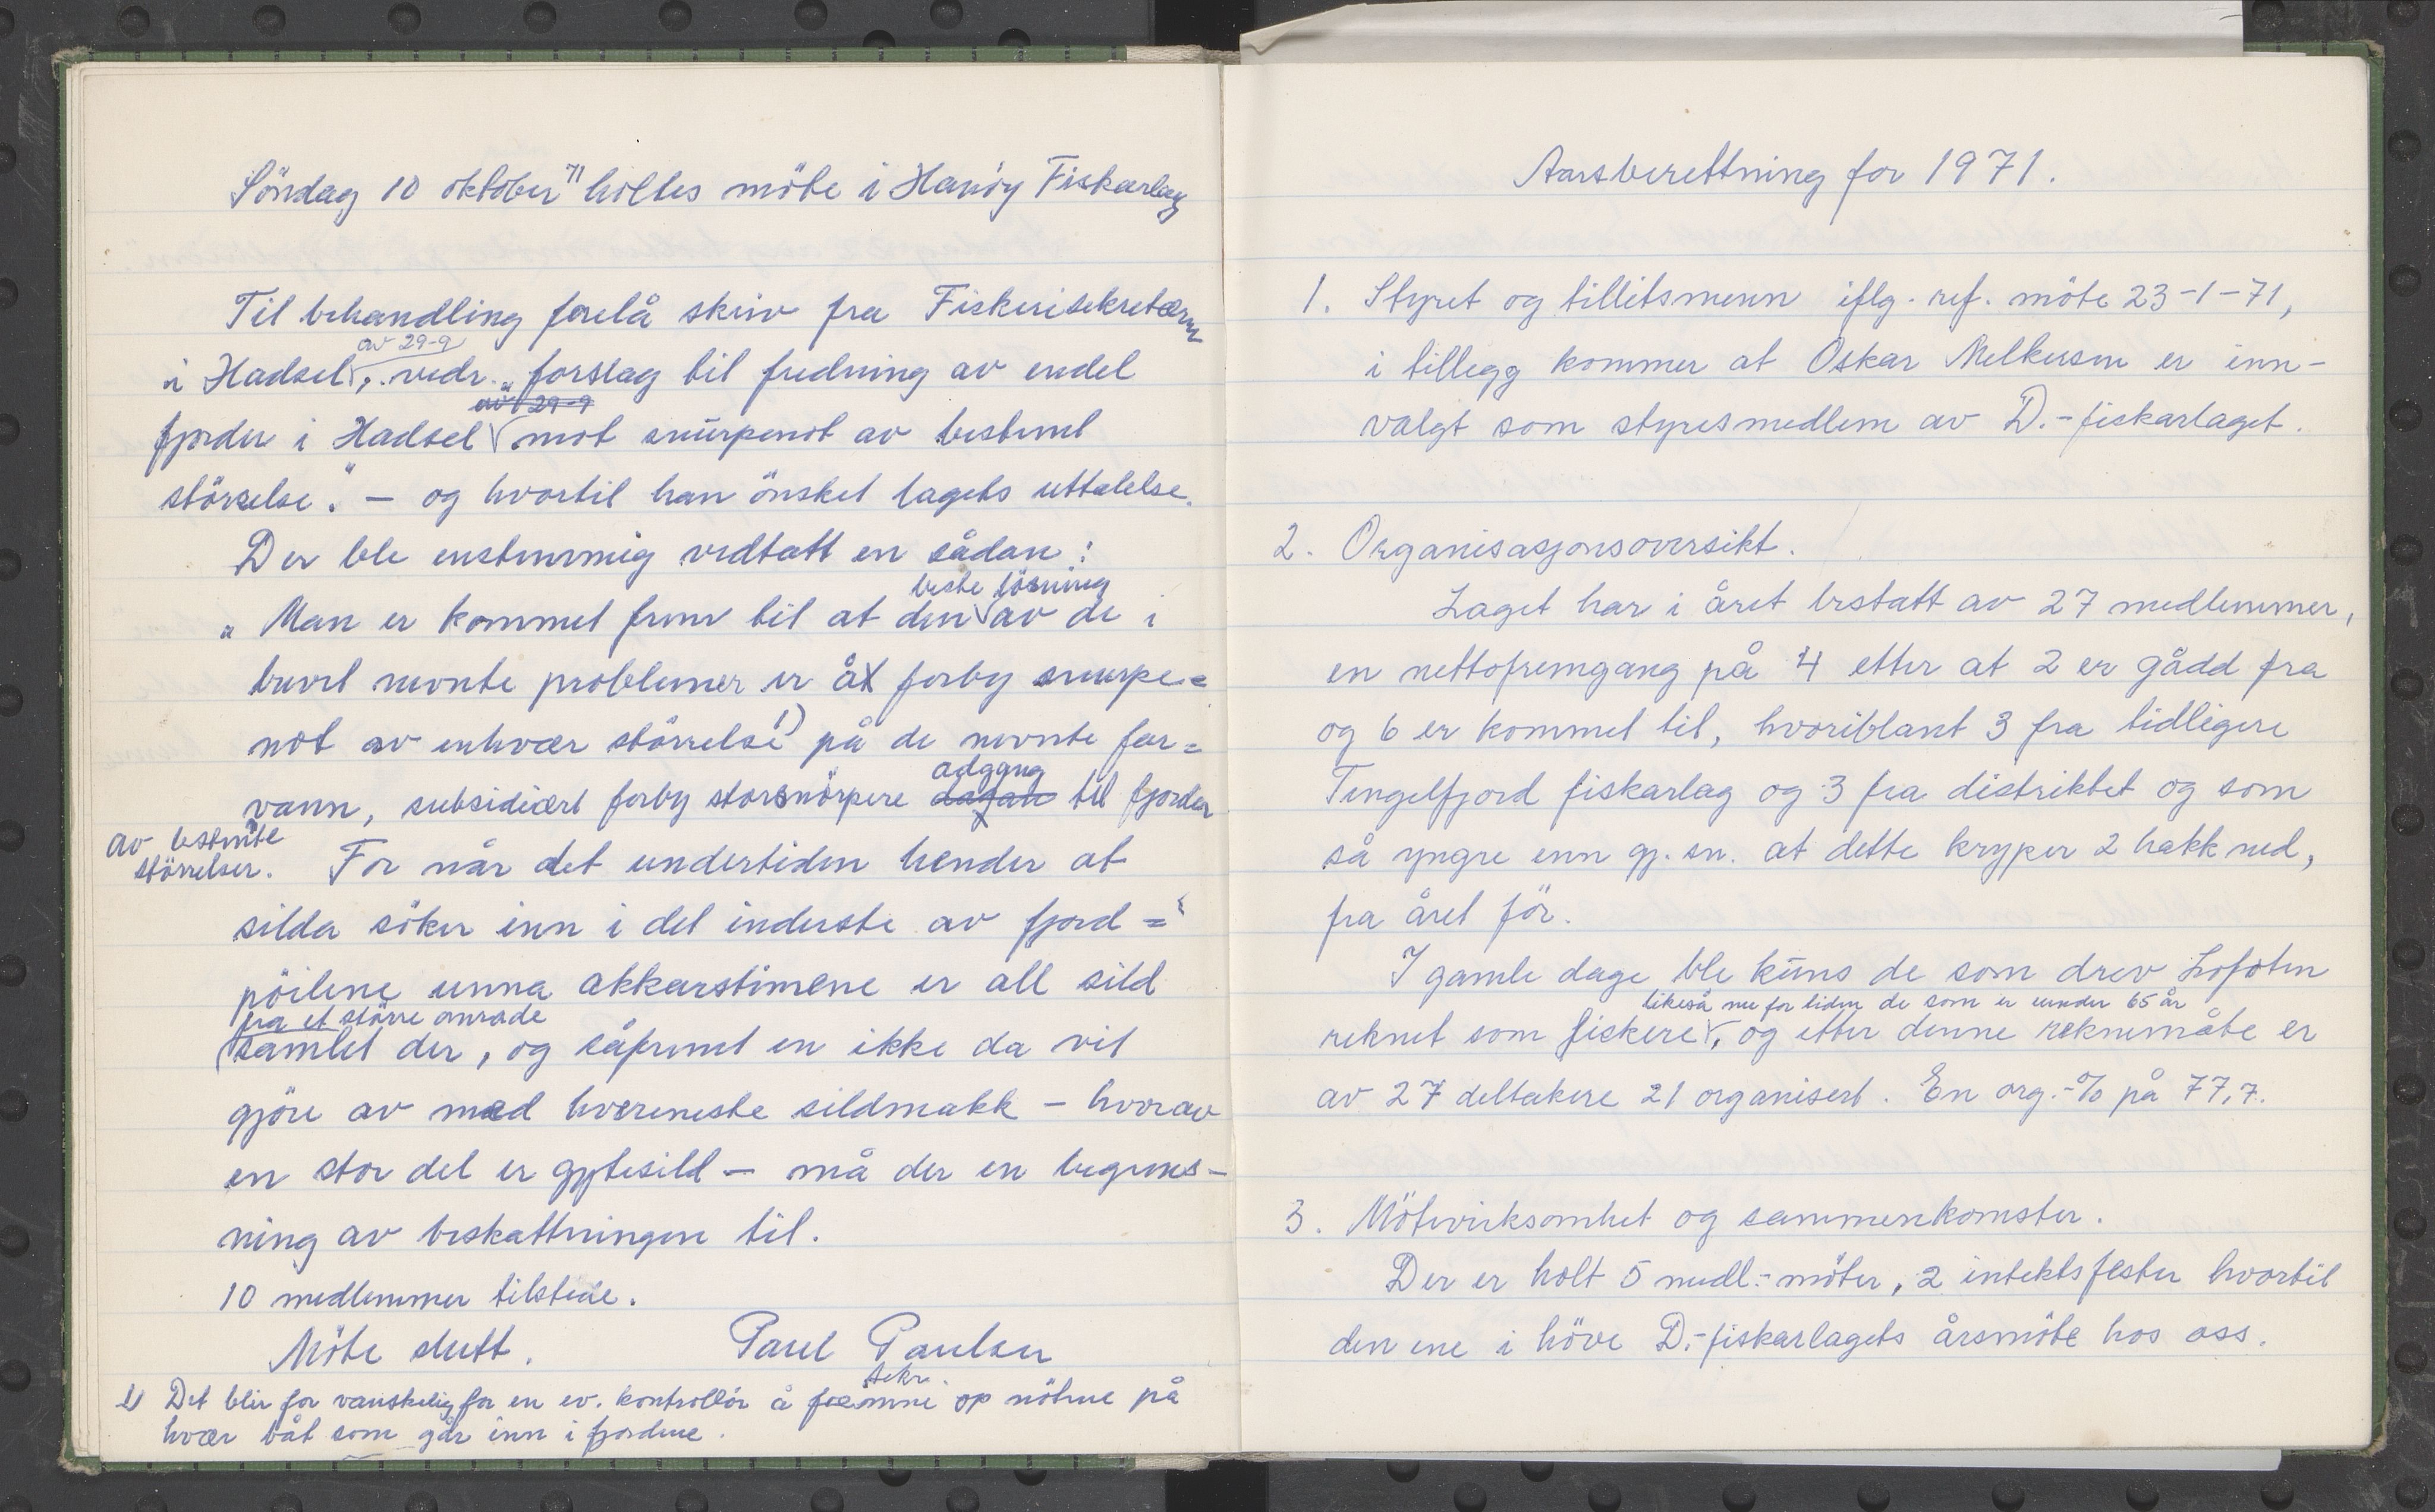 Söndag 10 oktober 71 holtes möte i Hanöy Fiskarlag
Til behandling forelå skriv fra Fiskerisekretæren
av 29-9
i Hadsel, vedr. „forslag til fredning av endel
av 29-9
fjorder i Hadsel mot snurpenot av bestemt
störrelse." – og hvortil han önsket lagets uttalelse.
Der ble enstemmig vedtatt en sådan:
beste lösning
„Man er kommet frem til at den av de i
brevet nevnte problemer er å forby snurpe=
not av enhvær störrelse 1) på de nevnte far=
adgang
vann, subsidiært forby storsnörpere til fjorder
av bestemte
störrelser. For når det undertiden hender at
silda söker inn i det inderste av fjord=
pöilene unna akkarstimene er all sild
fra et större område
samlet der, og såfremt en ikke da vil
gjöre av med hvereneste sildmakk – hvorav
en stor del er gytesild – må der en begrens-
ning av beskattningen til.
10 medlemmer tilstede.
Möte slutt. Paul Paulsen
sekr.
1) Det blir for vanskelig for en ev. kontrollör å op nötene på
hvær båt som går inn i fjordene.
Aarsberettning for 1971.
1. Styret og tillitsmenn iflg. ref. möte 23-1-71,
i tillegg kommer at Oskar Melkersen er inn-
valgt som styresmedlem av D.-fiskarlaget.
2. Organisasjonsoversikt.
Laget har i året bestått av 27 medlemmer,
en nettofremgang på 4 etter at 2 er gådd fra
og 6 er kommet til, hvoriblant 3 fra tidligere
Tengelfjord fiskarlag og 3 fra distriktet og som
så yngre enn gj. sn. at dette kryper 2 hakk ned,
fra året för.
I gamle dage ble kuns de som drev Lofoten
likeså nu for tiden de som er under 65 år
reknet som fiskere, og etter denne reknemåte er
av 27 deltakere 21 organisert. En org.-% på 77,7.
3. Mötevirksomhet og sammenkomster.
Der er holt 5 medl.-möter, 2 intektsfester hvortil
den ene i höve D.-fiskarlagets årsmöte hos oss.